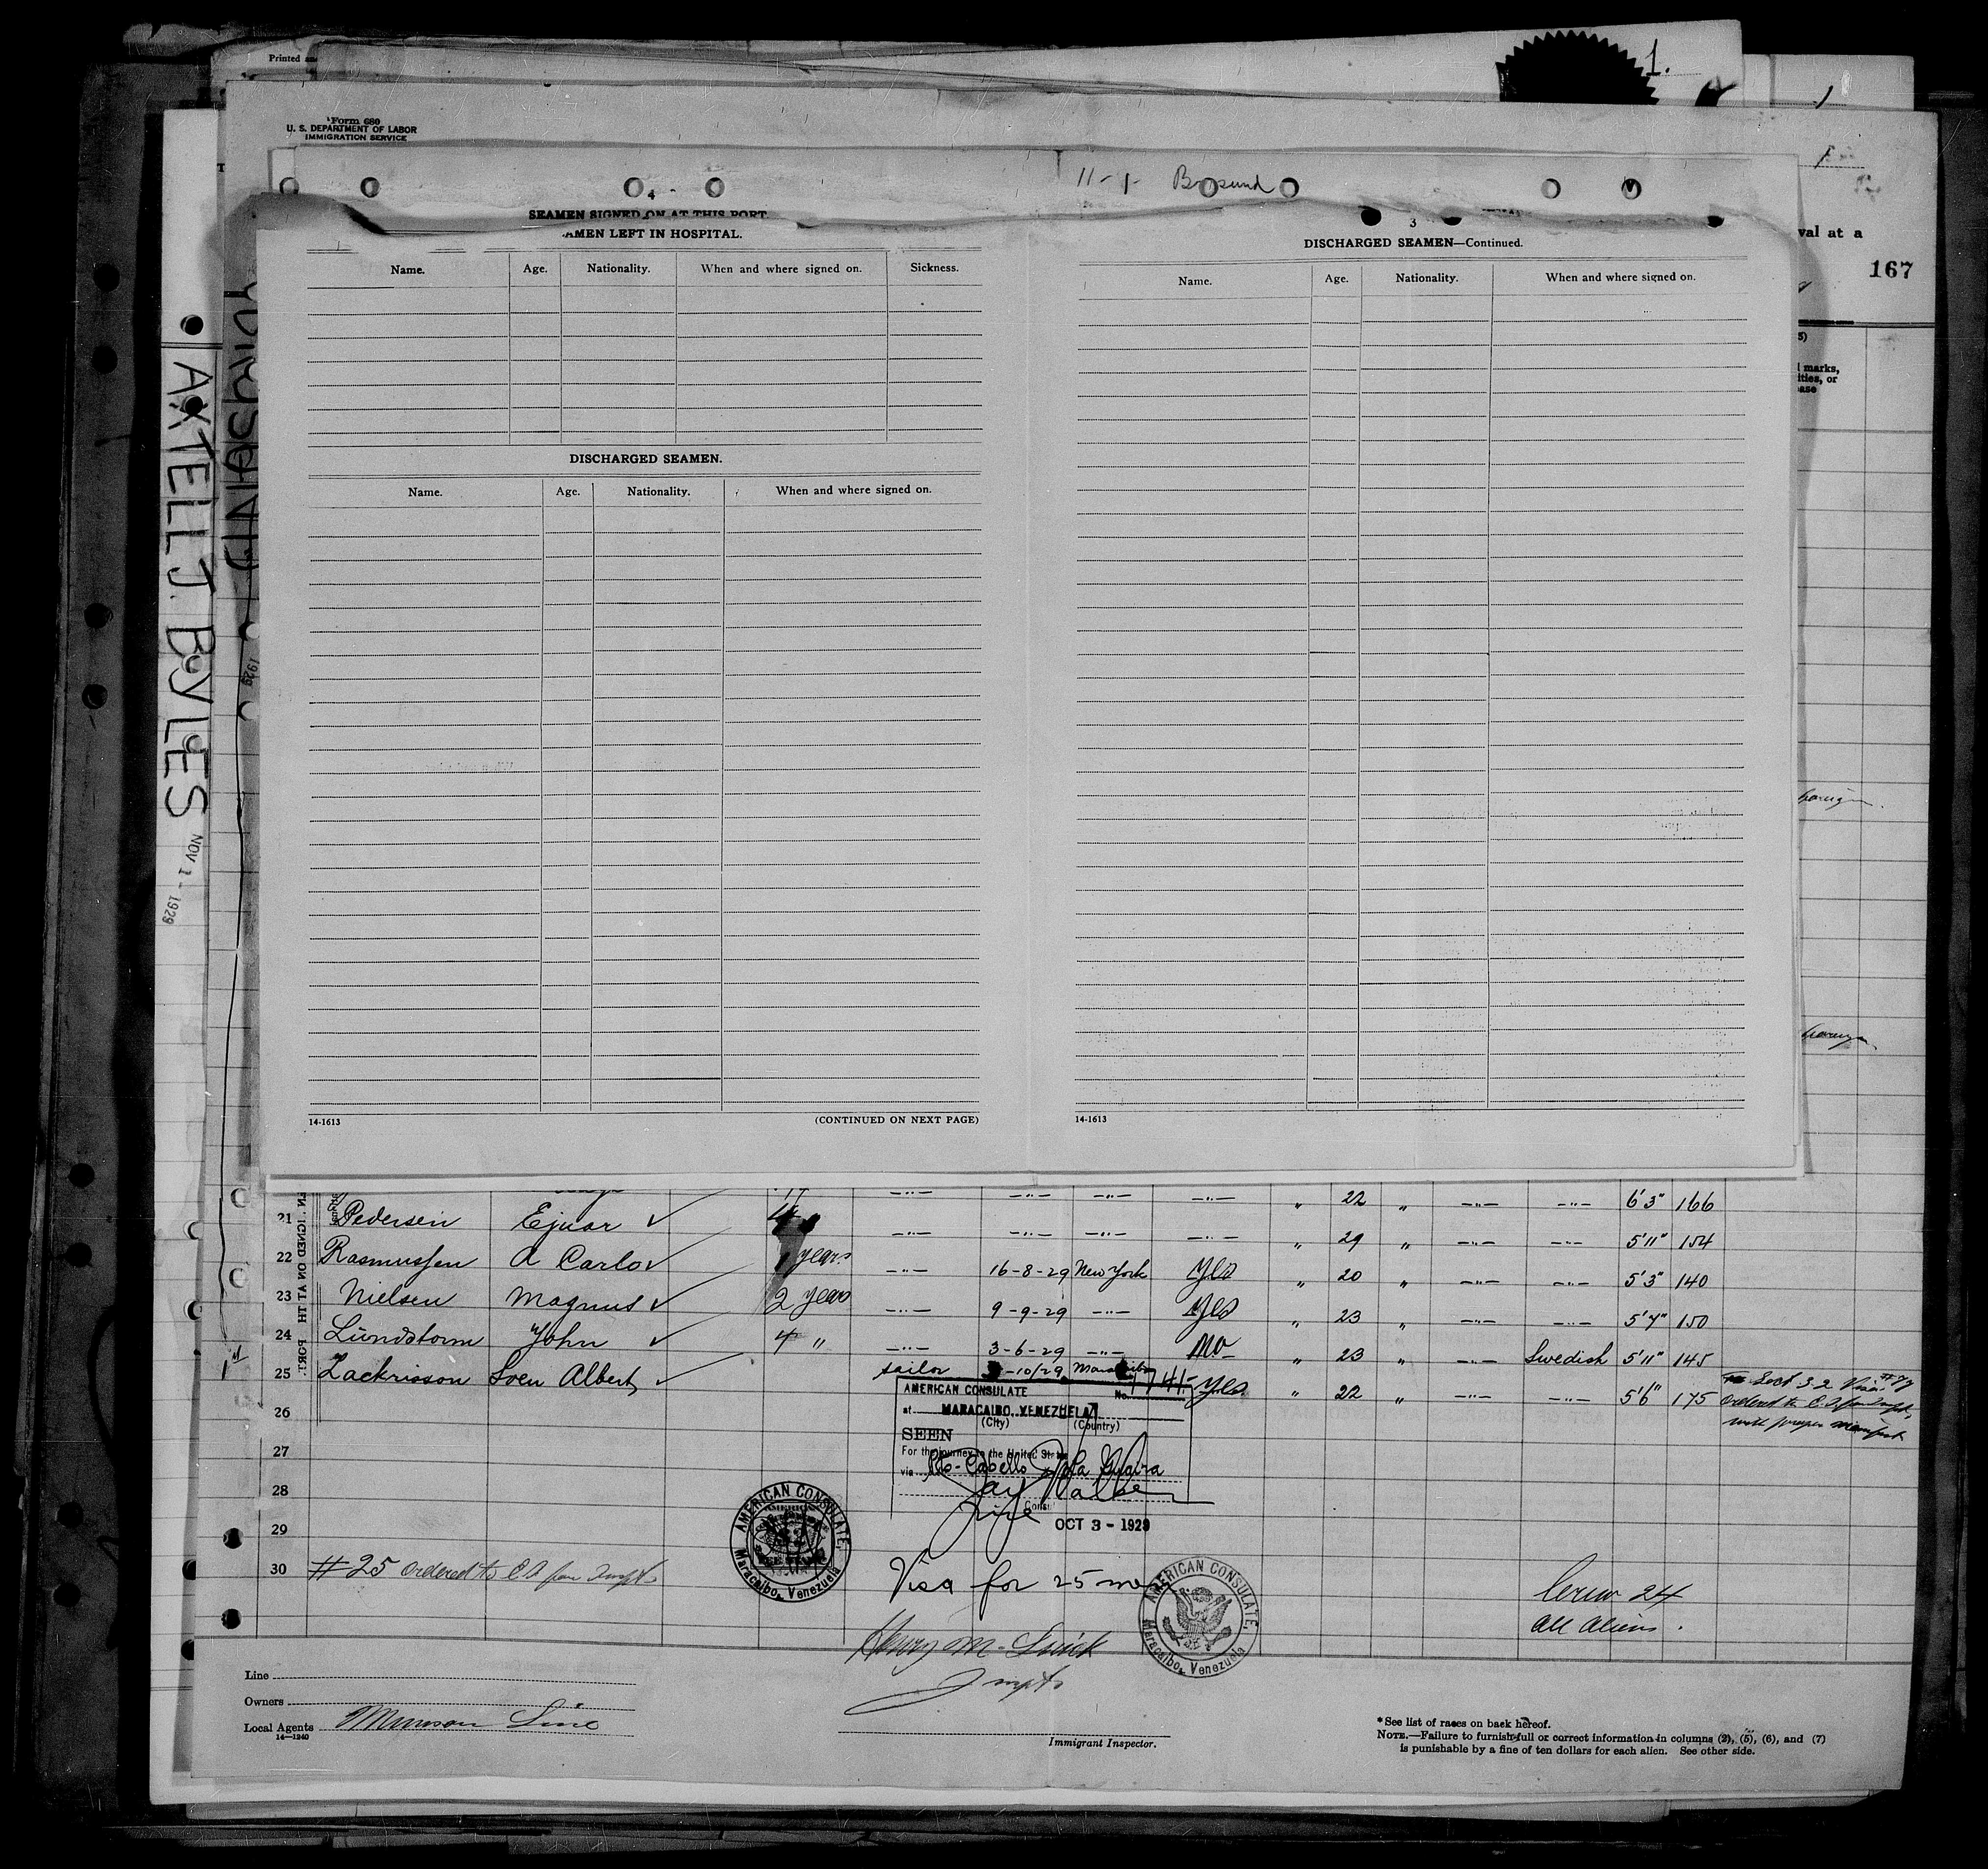 Printed
1.
Form 680
U. S. DEPARTMENT OF LABOR
IMMIGRATION SERVICE
11-1- Brosund
4
SEAMEN SIGNED ON AT THIS PORT
AMEN LEFT IN HOSPITAL.
Name. Age. Nationality. When and where signed on. Sickness.
DISCHARGED SEAMEN.
Name. Age. Nationality. When and where signed on.
14-1613 (CONTINUED ON NEXT PAGE)
3
DISCHARGED SEAMEN—Continued.
Name. Age. Nationality. When and where signed on.
14-1613
val at a
167
marks,
ities, or
ease
AXTELL J. BYLES
NOV 1 - 1929
1929
-"- -"- -"- -"- " 22 " -"- -"- 6'3" 166
21 Pedersen Ejnar ✓ -"- -"- -"- -"- " 29 " -"- -"- 5'11" 154
22 Rasmussen A Carlo ✓ years -"- 16-8-29 New York Yes " 20 " -"- -"- 5'3" 140
23 Nielsen Magnus ✓ 2 years -"- 9-9-29 -"- Yes " 23 " -"- -"- 5'7" 150
24 Lundstorm John ✓ 4 " -"- 3-6-29 -"- No " 23 " -"- Swedish 5'11" 145
25 Zackrisson Sven Albert ✓ sailor -10/29 Yes " 22 " -"- -"- 5'6" 175
Ordered to
with proper manifest
26
27
28
29
30 #25 ordered to
AMERICAN CONSULATE No. 1741
at MARACAIBO, VENEZUELA
(City) (Country)
SEEN
For the journey to the United States
via Pto-Cabello La Guaira
Jay Walker
Consul
OCT 3 - 1929
AMERICAN CONSULATE,
Maracaibo, Venezuela
Visa for 25 men
AMERICAN CONSULATE,
Maracaibo, Venezuela
Crew 24
All Aliens.
Henry M.
Line
Owners
Local Agents Munson Line
14-1240
Immigrant Inspector.
*See list of races on back hereof.
NOTE.—Failure to furnish full or correct information in columns (2), (5), (6), and (7)
is punishable by a fine of ten dollars for each alien. See other side.